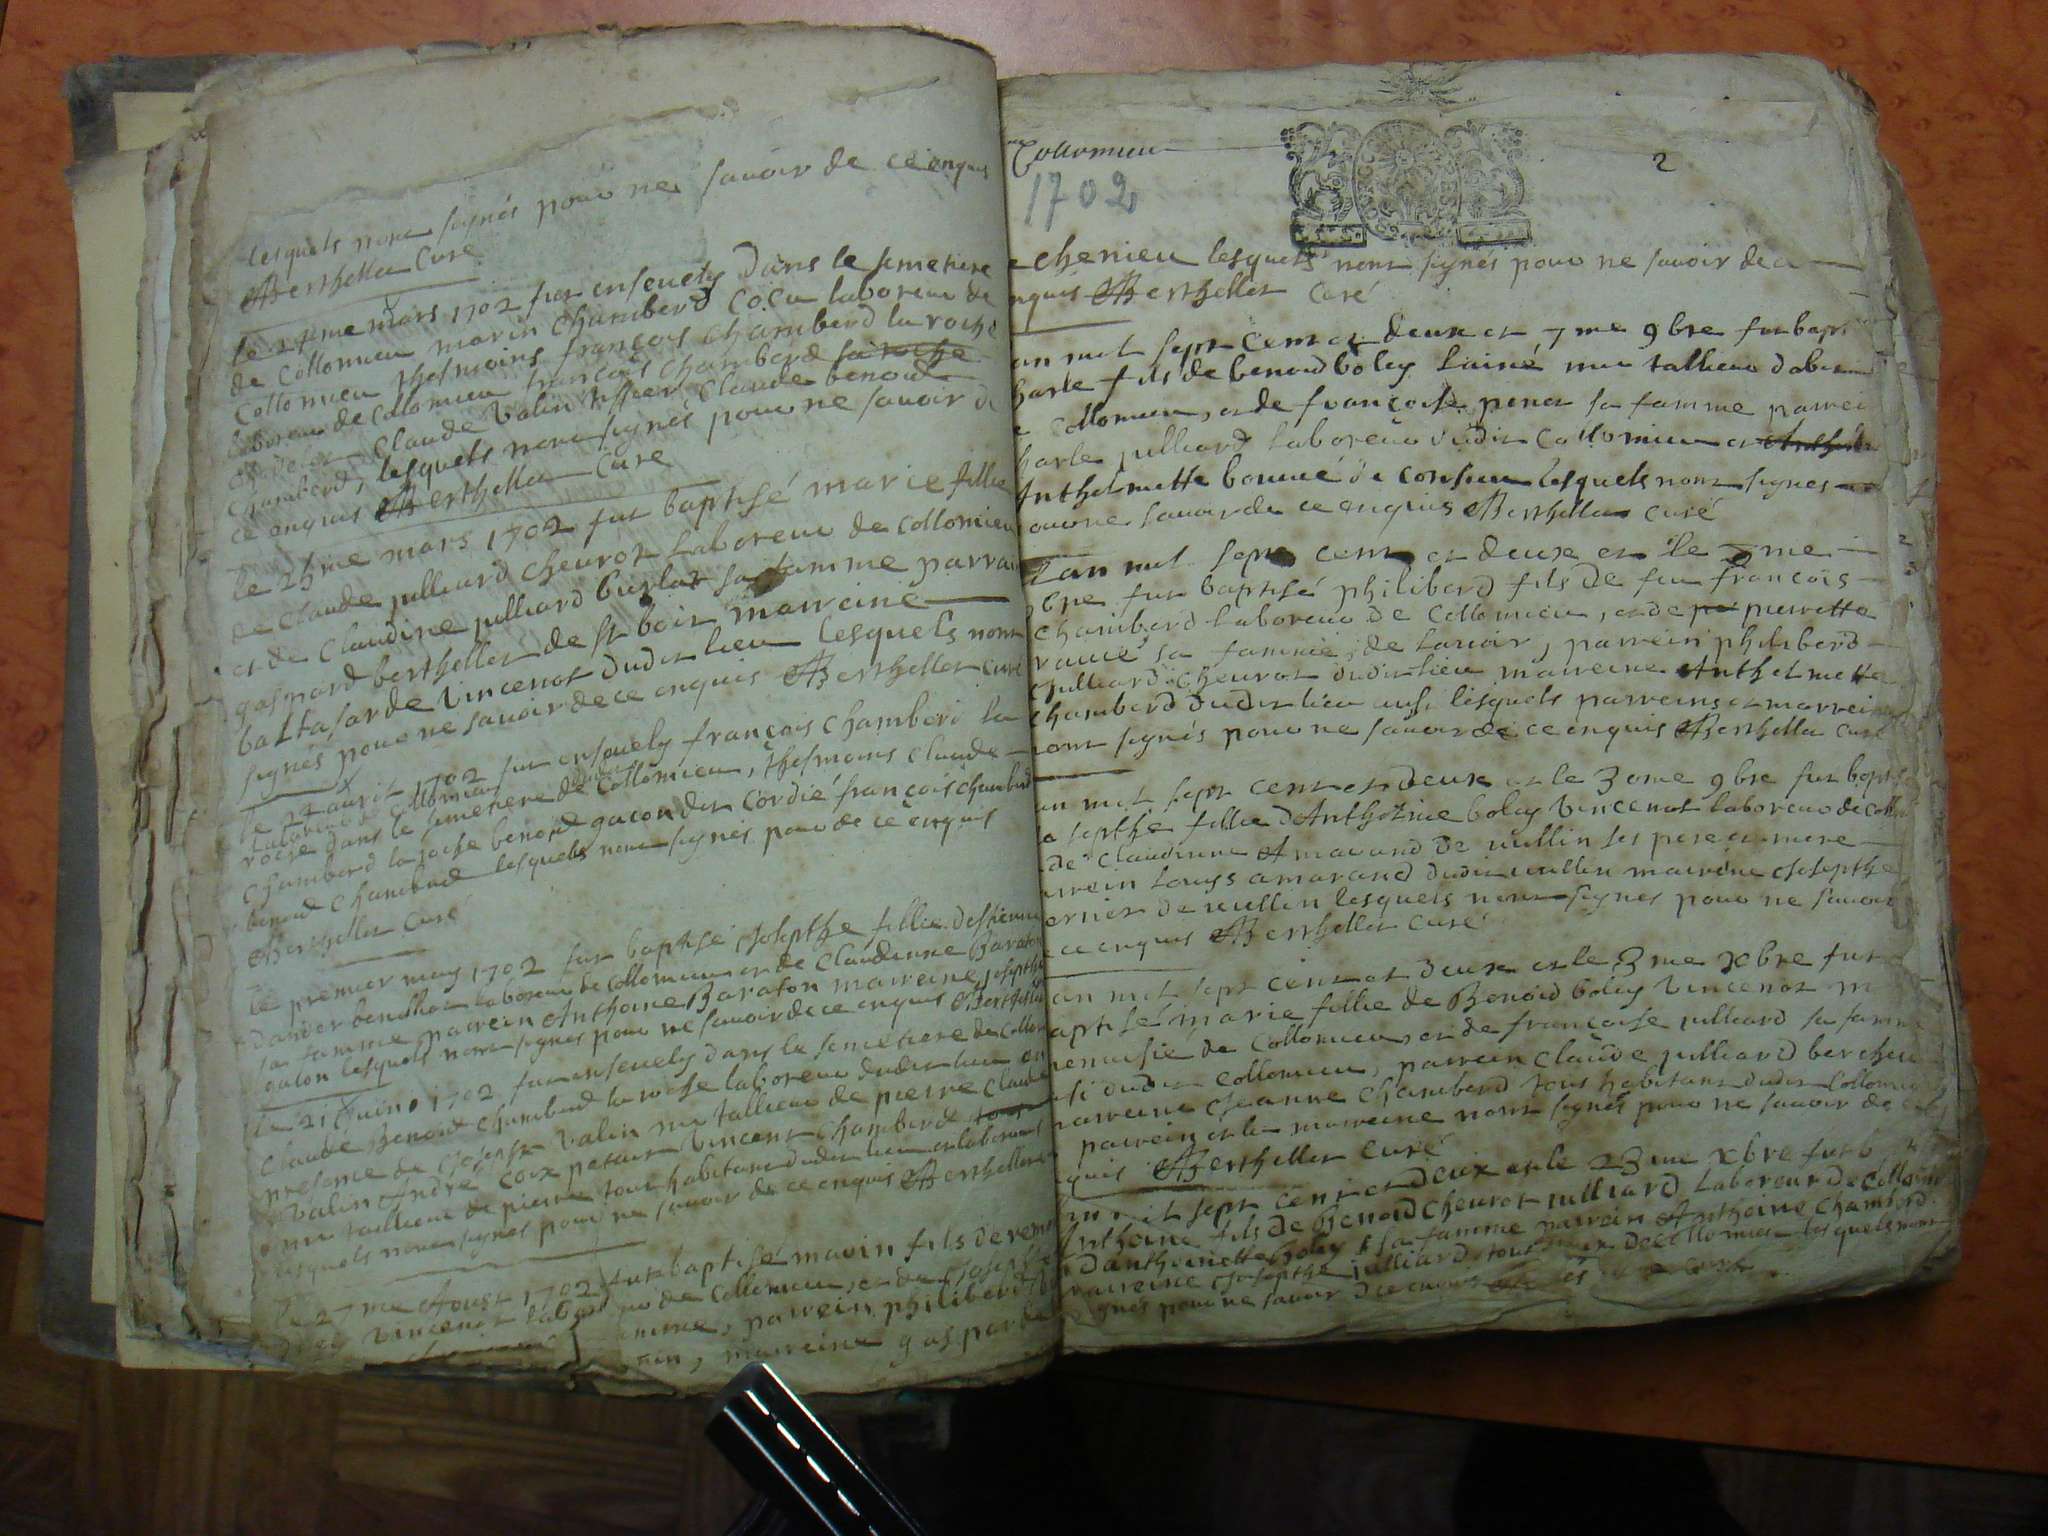 lesquels nont signés pour ne savoir de ce enquis
Berthellet Curé
le 24me mars 1702 fut ensevely dans le semetiere
de Collomieu marin Chamberd Cocu laboreur de
Collomieu thesmoins françois Chamberd la roche
laboreur de Collomieu françois Chamberd la roche
Claude Valin tissier Claude benoid
Chamberd, lesquels nont signés pour ne savoir de
ce enquis Berthellet Curé
le 25me mars 1702 fut baptisé marie fillie
de Claude julliard Cheurot laboreur de Collomieu
et de Claudine julliard burlat sa famme parrain
gaspard berthellet de st boit marreine
baltasarde Vincenot dudit lieu lesquels nont
signés pour ne savoir de ce enquis Berthellet Curé
le auril 1702 fut ensevely françois Chamberd la
laboreur de Collomieu
roche dans le semetiere de Collomieu, thesmoins Claude
Chamberd la roche benoid gucon dit Cordié françois Chamberd
benoid Chamberd lesquels nont signés pour de ce enquis
Berthellet Curé
le premier may 1702 fut baptisé Josepthe fillie destienne
laboreur de Collomieu et de Claudinne Baraton
sa famme parrein Anthoine Baraton marreine josepthe
lesquels nont signés pour ne savoir de ce enquis Berthellet
le 21 juin 1702 fut ensevely dans le semetiere de Collomieu
Claude Benoid Chamberd la roche laboreur dudit lieu en
presence de Joseph Valin me tallieur de pierre Claude
Valin André Vincent Chamberd
me tallieur de pierre tous habitans dudit lieu et laboreurs
lesquels nont signés pour ne savoir de ce enquis Berthellet
le 27me Aoust 1702 fut baptisé marin fils de
boley Vincenot laboreur de Collomieu, et de Josepthe
famme, parrein philiberd
marreine gasparde
Collomieu
1702
2
chenieu lesquels nont signés pour ne savoir de ce
enquis Berthellet Curé
an mil sept cent et deux et 7me 9bre fut bapt
charle fils de benoid boley lainé me tallieur dabi
Collomieu, et de françoise penet sa famme parrei
charle julliard laboreur dudit Collomieu et
Anthelmette bonne de Consieu lesquels nont signés
pour ne savoir de ce enquis Berthellet Curé
Lan mil sept cent et deux et le 7me
9bre fut baptisé philiberd fils de feu françois
Chamberd laboreur de Collomieu, et de pierrette
sa famme, de parrein philiberd
julliard Cheurot dudit lieu marreine Anthelmette
Chamberd dudit lieu aussi lesquels parreins et marreines
nont signés pour ne savoir de ce enquis Berthellet Curé
an mil sept cent et deux et le 30me 9bre fut bapt
Josepthe fillie dAnthoine boley Vincenot laboreur de Coll
de Claudinne Amarand de uullin ses pere et mere
parrein Louys amarand dudit uullin marreine Josepthe
de uullin lesquels nont signés pour ne savoir
de ce enquis Berthellet Curé
an mil sept cent et deux et le 3me Xbre fut
baptisé marie fillie de Benoid boley Vincenot m
menuisié de Collomieu, et de françoise julliard sa famme
dudit Collomieu, parrein Claude julliard
marreine Jeanne Chamberd tous habitans dudit Collomieu
parrein et la marreine nont signés pour ne savoir de ce
enquis Berthellet Curé
an mil sept cent et deux et le 23me Xbre fut b
Anthoine fils de Benoid Cheurot julliard laboreur de Collomieu
dAnthoinette boley sa famme parrein Anthoine Chamberd
marreine Josepthe julliard tous deux de Collomieu lesquels nont
signés pour ne savoir de ce enquis